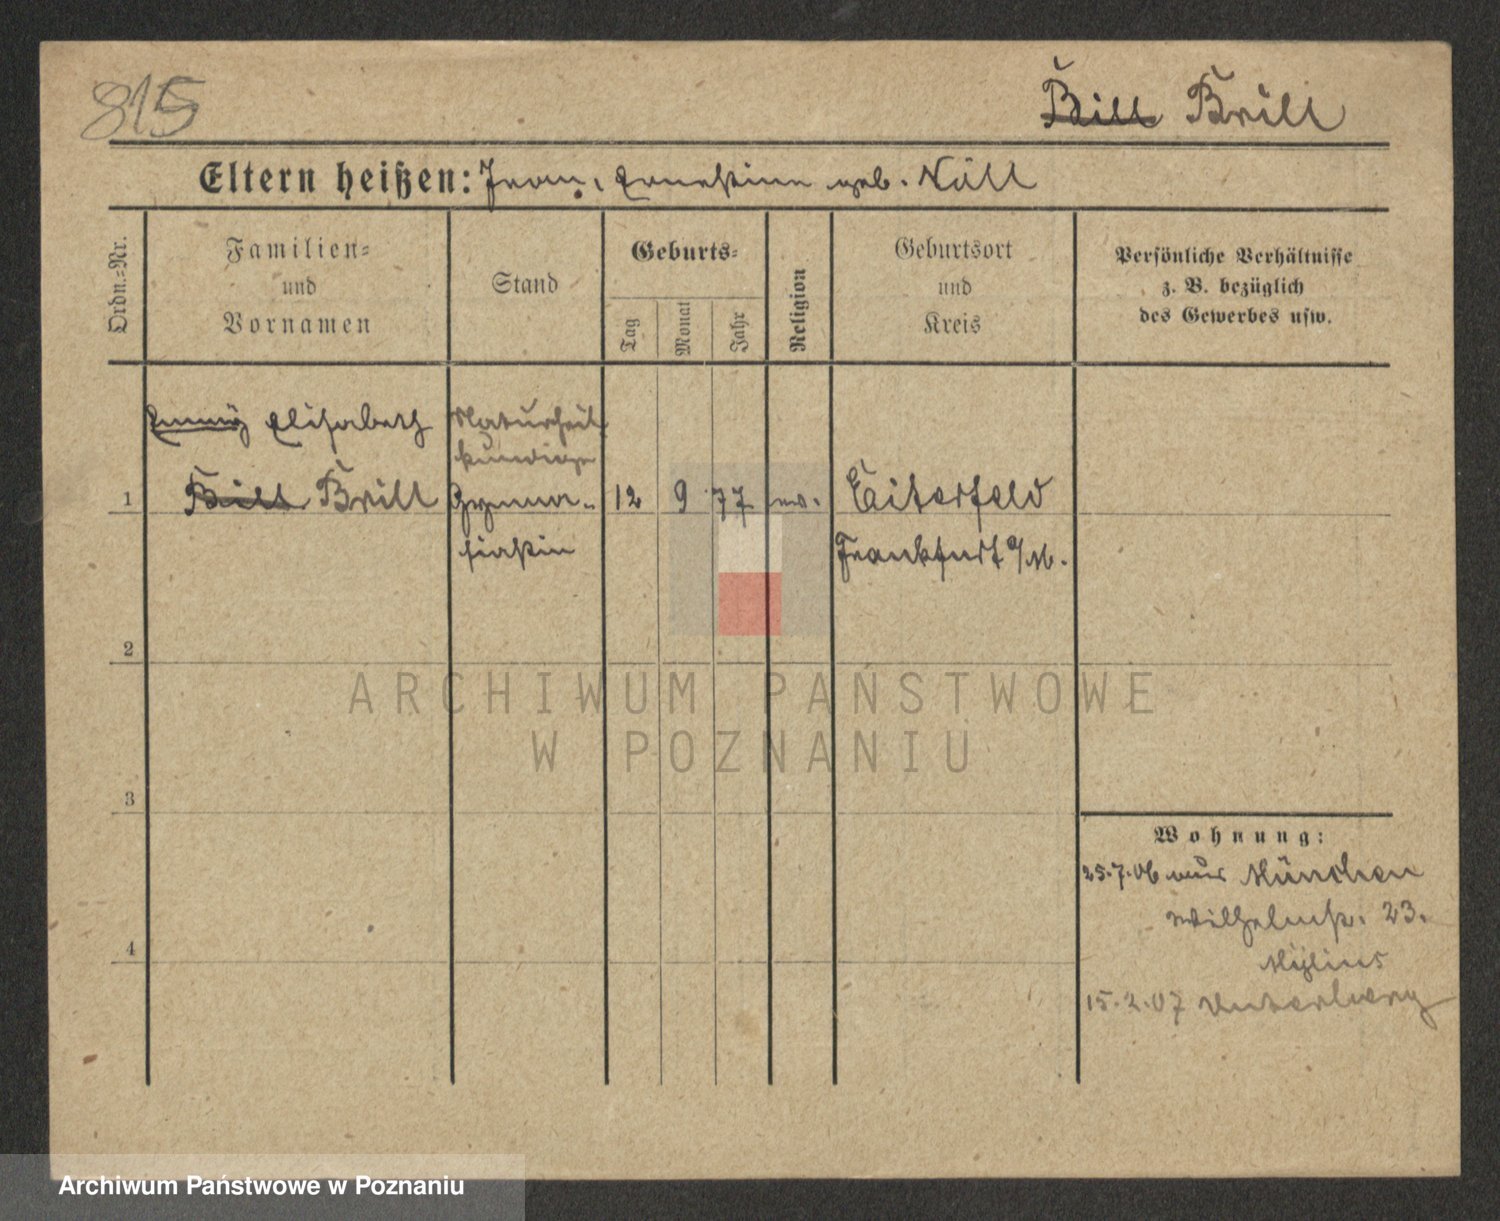 815
Bill Brill
Eltern heißen: Jean, Ernestine geb. Nüll
Ordn.=Nr.
Familien=
und
Vornamen
Stand
Geburts=
Tag
Monat
Jahr
Religion
Geburtsort
und
Kreis
Persönliche Verhältnisse
z. B. bezüglich
des Gewerbes usw.
Emmy Elisabeth
Naturheil
kundige
1 Bill Brill Gymna- 12 9 77 ev. Eiterfeld
siastin Frankfurt a/M.
2
ARCHIWUM PAŃSTWOWE
W POZNANIU
3
Wohnung:
25.7.06 aus München
Wilhelmstr. 23.
Mylius
15.2.07
4
Archiwum Państwowe w Poznaniu